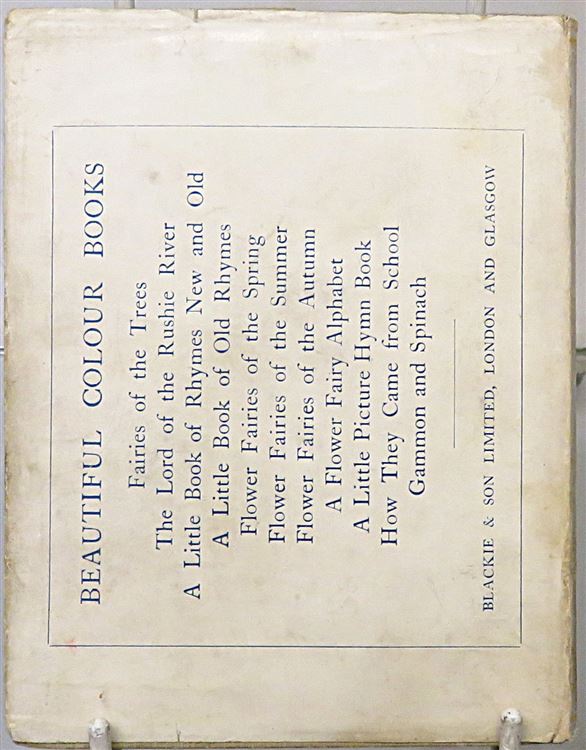 BEAUTIFUL COLOUR BOOKS
Fairies of the Trees
The Lord of the Rushie River
A Little Book of Rhymes New and Old
A Little Book of Old Rhymes
Flower Fairies of the Spring
Flower Fairies of the Summer
Flower Fairies of the Autumn
A Flower Fairy Alphabet
A Little Picture Hymn Book
How They Came from School
Gammon and Spinach
BLACKIE & SON LIMITED, LONDON AND GLASGOW